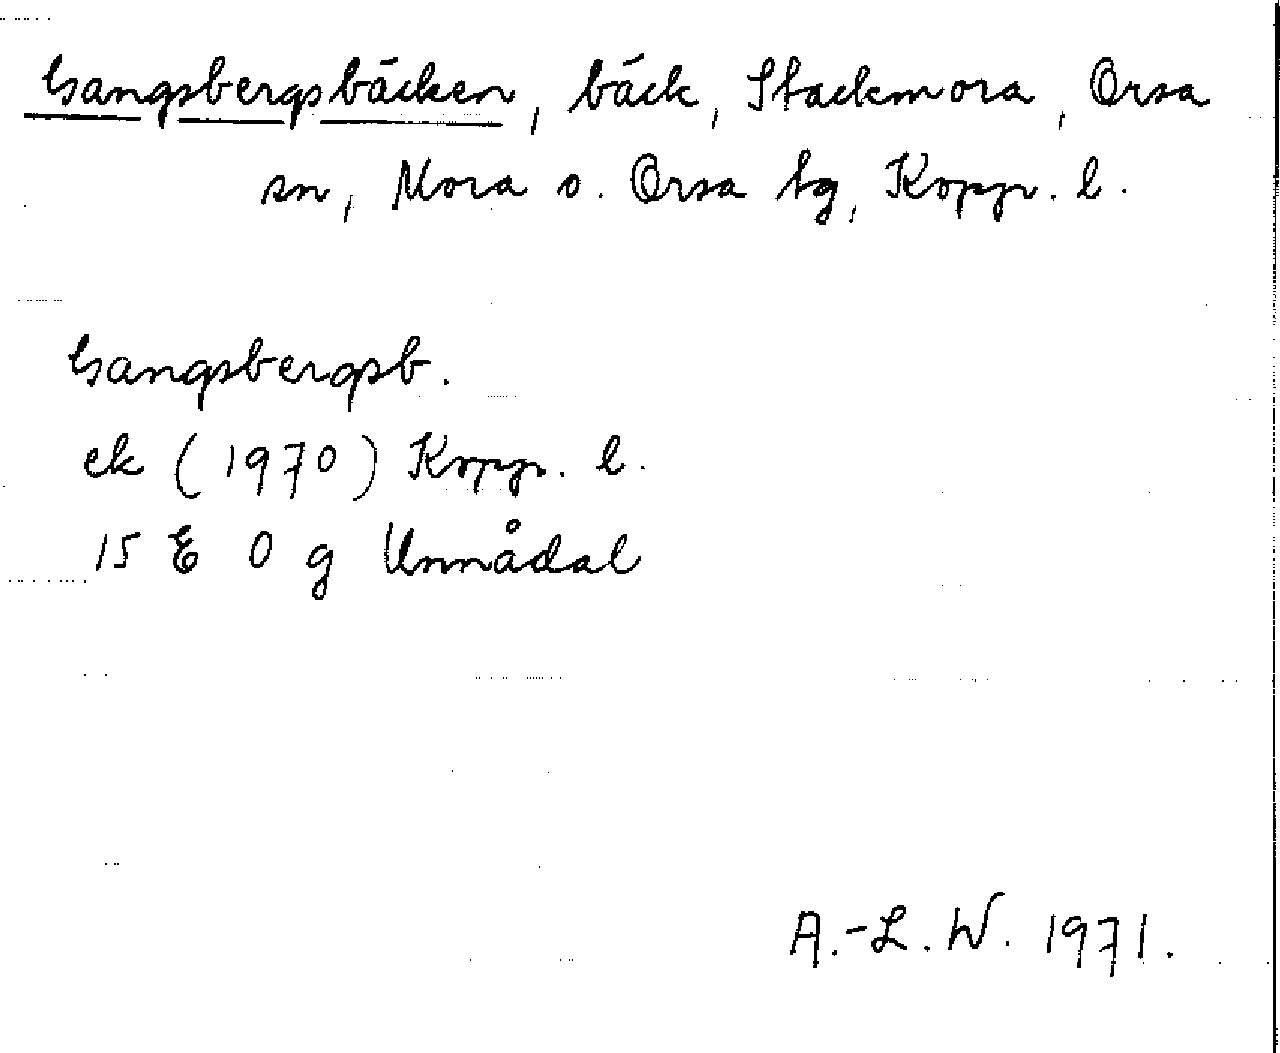 Gangsbergsbäcken, bäck, Stackmora, Orsa
sn, Mora o. Orsa tg, Kopp. l.
Gangsbergsb.
ek (1970) Kopp. l.
15 E 0 g Unnådal
A.-L. W. 1971.